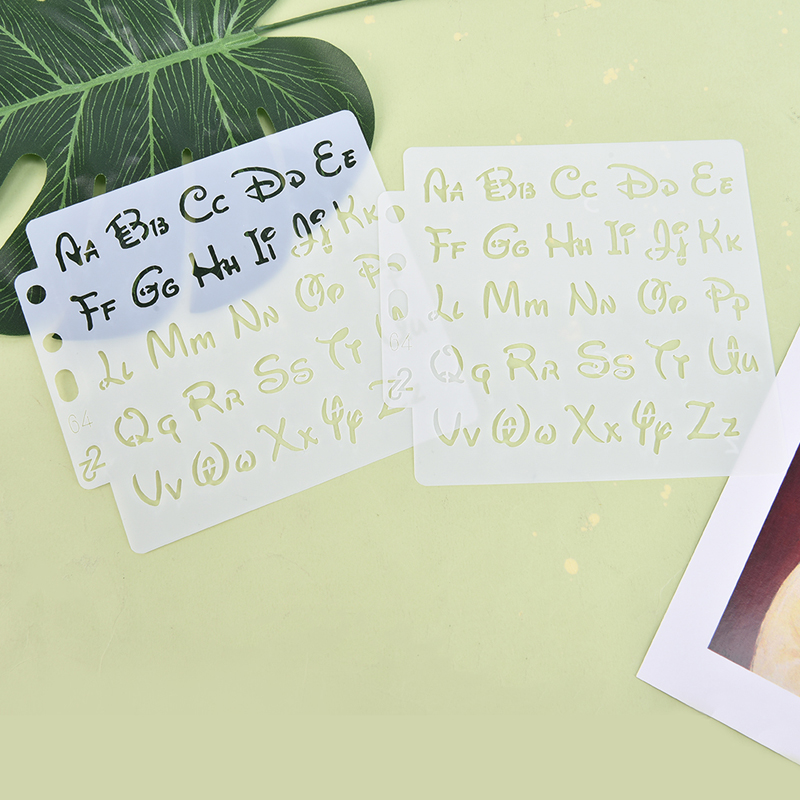 Aa Bb Cc Dd Ee
Ff Gg Hh Ii Jj Kk
Ll Mm Nn Oo Pp
Qq Rr Ss Tt Uu
64
Vv Ww Xx Yy Zz
Aa Bb Cc Dd Ee
Ff Gg Hh Ii Jj Kk
Ll Mm Nn Oo Pp
64
Qq Rr Ss Tt Uu
Vv Ww Xx Yy Zz